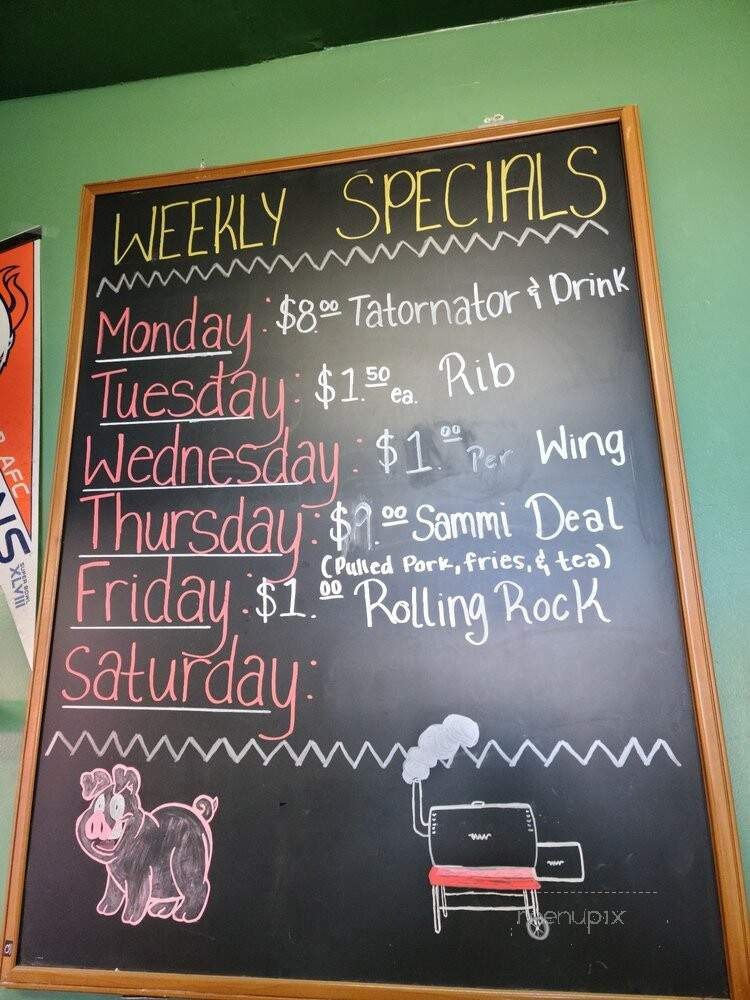 WEEKLY SPECIALS
Monday: $8.00 Tatornator & Drink
Tuesday: $1.50 ea. Rib
Wednesday: $1.00 Per Wing
Thursday: $9.00 Sammi Deal
(Pulled Pork, fries, & tea)
Friday: $1.00 Rolling Rock
Saturday:
AFC
NS
SUPER BOWL
XLVIII
menupix